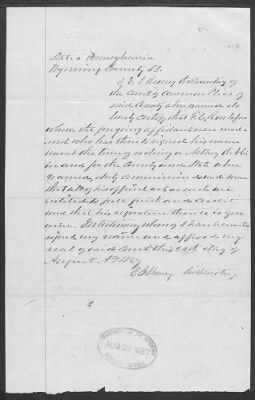 State of Pennsylvania
Wyoming County SS.
I, E. J. Keeney Prothonotary of
the Court of Common Pleas of
said County above named do
hereby certify that R. C. Ross before
whom the foregoing affidavits were made
and who has thereto signed his name
was at the time of so doing a Notary Public
in and for the County and State above
named, duly commissioned and sworn
that all of his official acts as such are
entitled to full faith and credit
and that his signature thereto is gen
uine. In testimony whereof I have hereunto
signed my name and affixed my
seal of said Court this day of
August A.D. 1887
Keeney Prothonotary
AUG 23 1887